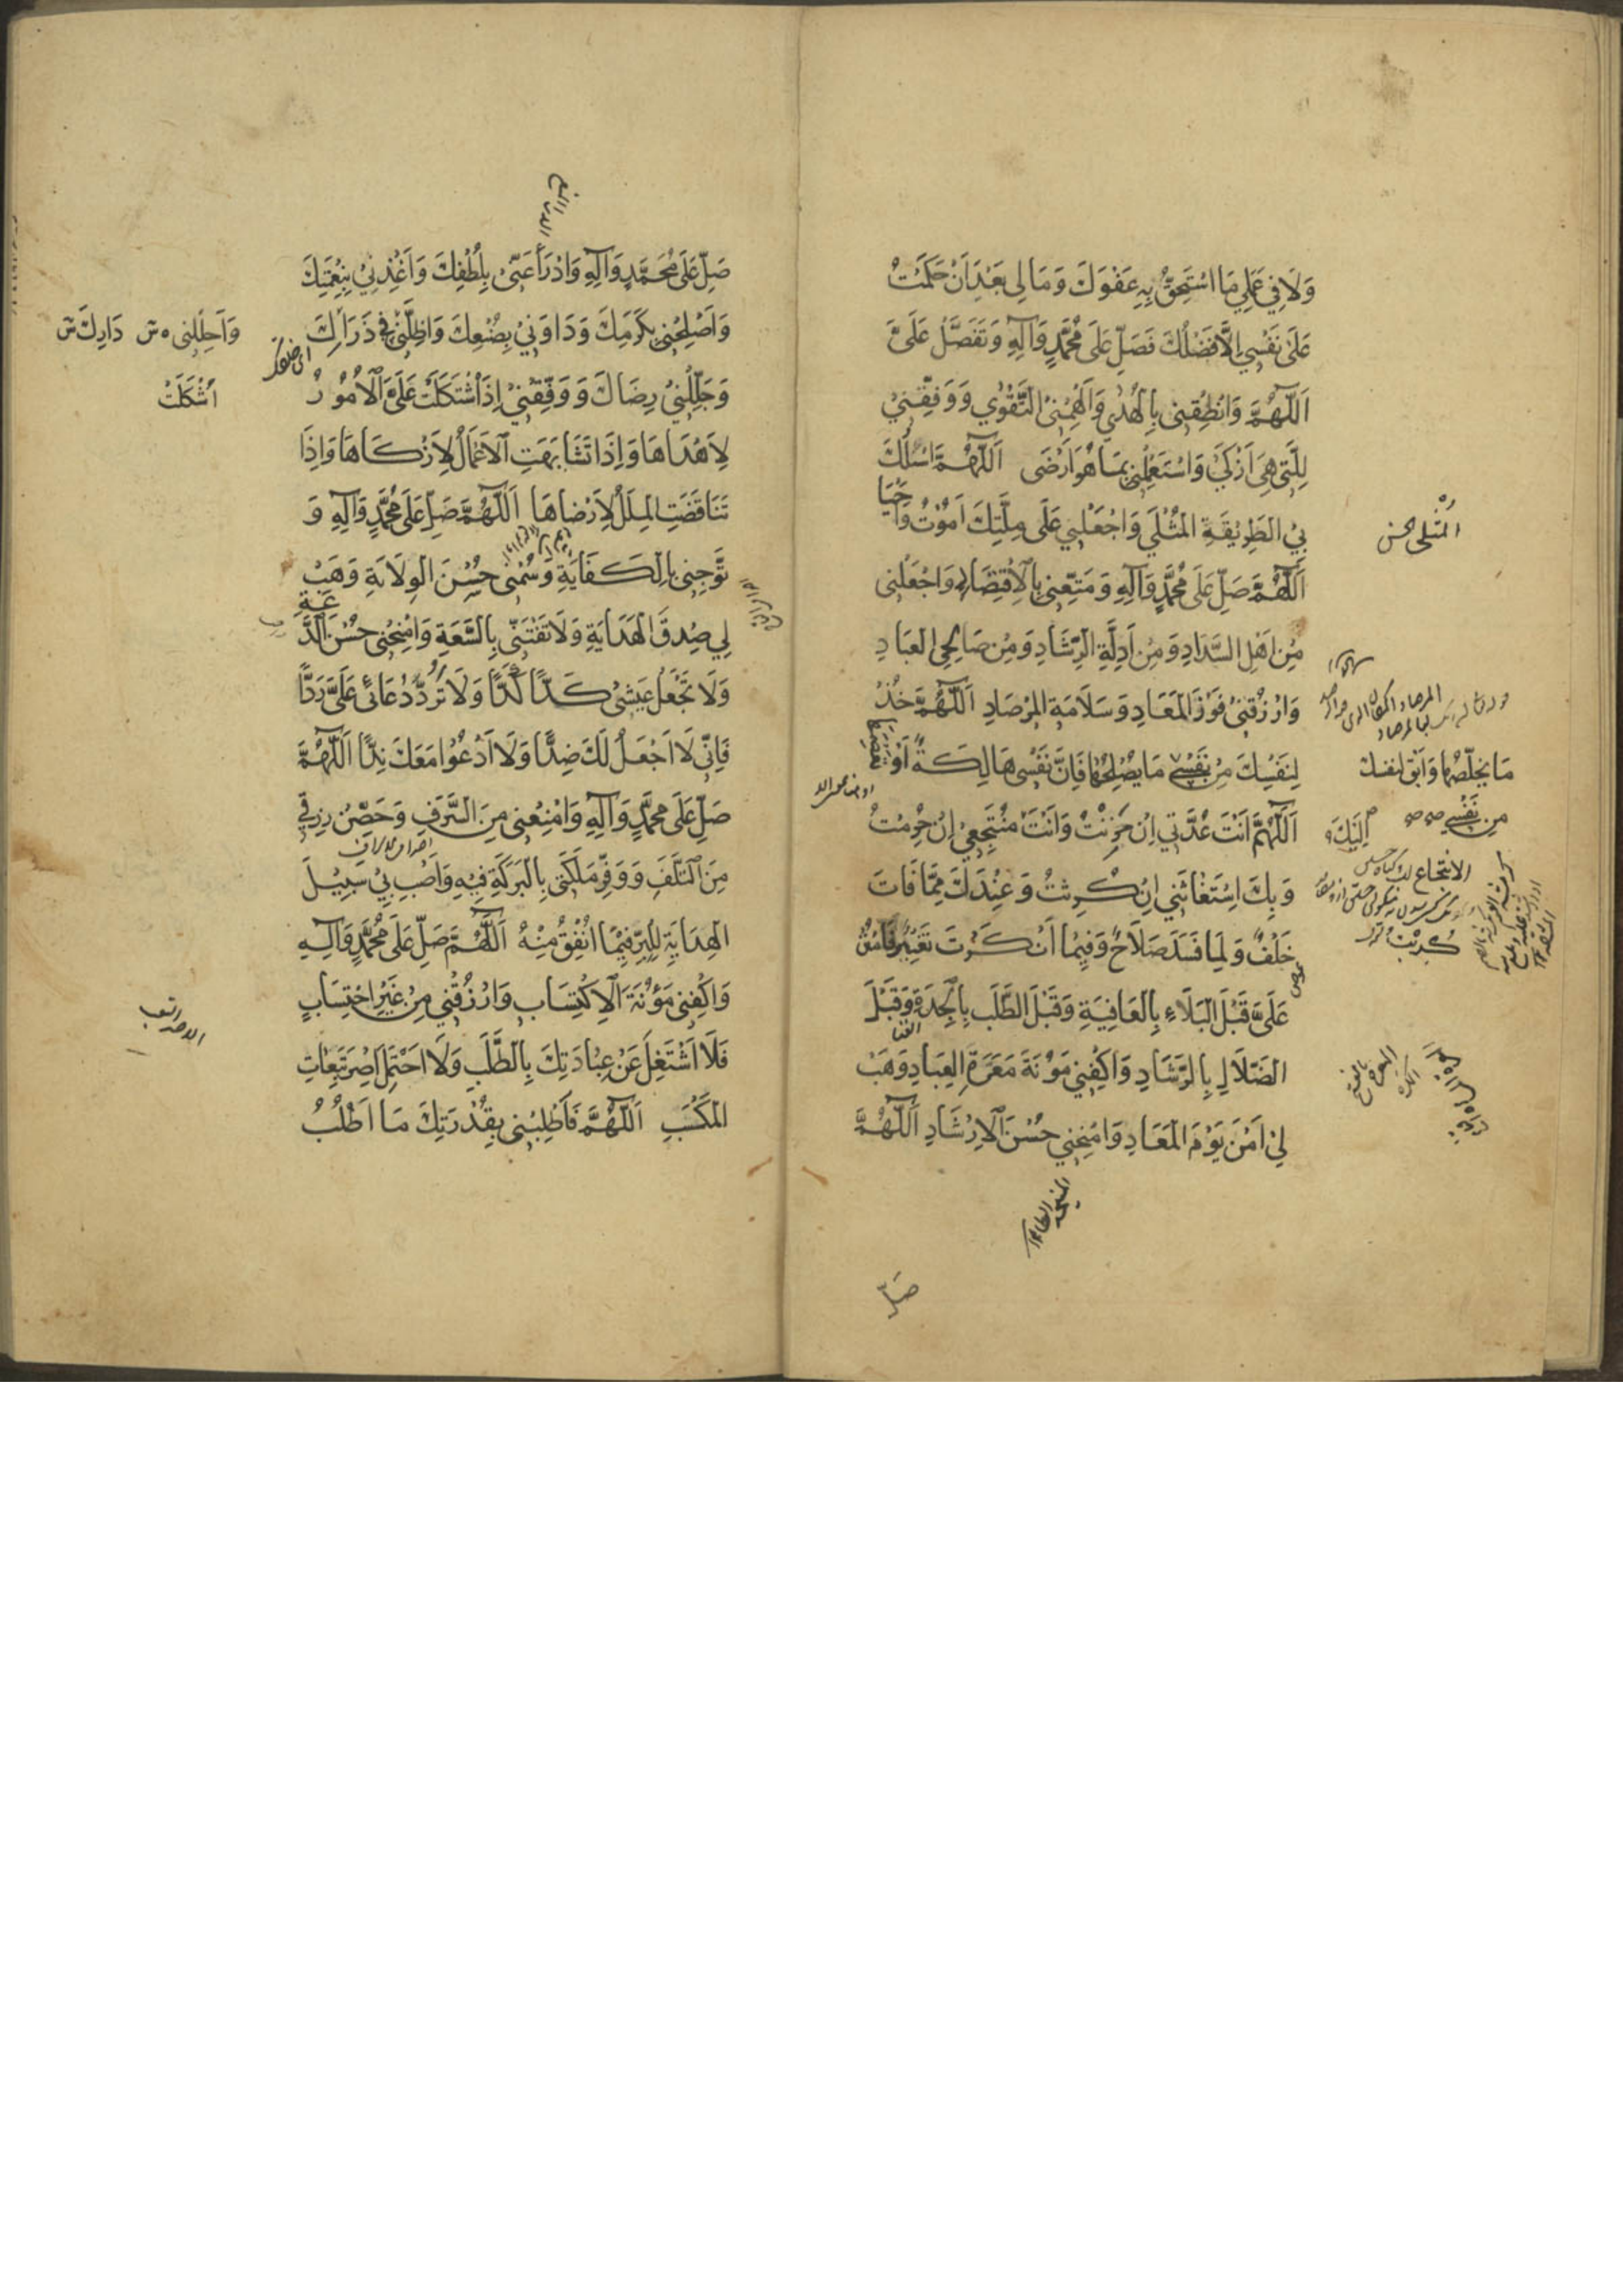 وَلَا فِي عَمَلِي مَا اسْتَحِقُّ بِهِ عَفْوَكَ وَمَا لِي بَعْدَ اَنْ حَكَمْتُ
عَلَى نَفْسِي اِلَّا فَضْلُكَ فَصَلِّ عَلَى مُحَمَّدٍ وَآلِهِ وَتَفَضَّلْ عَلَىَّ
اَللّٰهُمَّ وَانْطِقْنِي بِالْهُدٰى وَاَلْهِمْنِى التَّقْوٰى وَوَفِّقْنِيْ
لِلَّتِي هِيَ اَزْكَى وَاسْتَعْمِلْنِي بِمَا هُوَ اَرْضَى اَللّٰهُمَّ اسْلُكْ
بِيَ الطَّرِيْقَةَ الْمُثْلَى وَاجْعَلْنِي عَلَى مِلَّتِكَ اَمُوْتُ وَاَحْيَا
اَللّٰهُمَّ صَلِّ عَلَى مُحَمَّدٍ وَآلِهِ وَمَتِّعْنِي بِالْاِقْتِصَادِ وَاجْعَلْنِى
مِنْ اَهْلِ السَّدَادِ وَمِنْ اَدِلَّةِ الرَّشَادِ وَمِنْ صَالِحِي الْعِبَادِ
وَارْزُقْنِيْ فَوْزَ الْمَعَادِ وَسَلَامَةَ الْمِرْصَادِ اَللّٰهُمَّ خُذْ
لِنَفْسِكَ مِنْ نَفْسِي مَا يُصْلِحُهَا فَاِنَّ نَفْسِي هَالِكَةٌ اَوْ تَعْصِمَهَا
اَللّٰهُمَّ اَنْتَ عُدَّتِي اِنْ حَزِنْتُ وَاَنْتَ مُنْتَجَعِيْ اِنْ حُرِمْتُ
وَبِكَ اسْتِغَاثَتِي اِنْ كَرِثْتُ وَعِنْدَكَ مِمَّا فَاتَ
خَلَفٌ وَلِمَا فَسَدَ صَلَاحٌ وَفِيْمَا اَنْكَرْتَ تَغْيِيْرٌ فَامْنُنْ
عَلَىَّ قَبْلَ الْبَلَاءِ بِالْعَافِيَةِ وَقَبْلَ الطَّلَبِ بِالْجِدَةِ وَقَبْلَ
الضَّلَالِ بِالرَّشَادِ وَاكْفِنِي مَؤُنَةَ مَعَرَّةِ الْعِبَادِ وَهَبْ
لِيْ اَمْنَ يَوْمِ الْمَعَادِ وَامْنِحْنِي حُسْنَ الْاِرْشَادِ اَللّٰهُمَّ
الْمُثْلٰى
مَا يُخَلِّصُهَا وَاَبْقِ لِنَفْسِكَ
مِنْ نَفْسِي
اِلَيْكَ
الانتجاع
كُرِبْتُ
صَلِّ
صَلِّ عَلَى مُحَمَّدٍ وَآلِهِ وَادْرَأْ عَنِّيْ بِلُطْفِكَ وَاغْذُنِيْ بِنِعْمَتِكَ
وَاَصْلِحْنِي بِكَرَمِكَ وَدَاوِنِيْ بِصُنْعِكَ وَاَظِلَّنِيْ فِي ذَرَاكَ
وَجَلِّلْنِيْ رِضَاكَ وَوَفِّقْنِيْ اِذَا اشْتَكَلَتْ عَلَىَّ الْاُمُوْرُ
لِاَهْدَاهَا وَاِذَا تَشَابَهَتِ الْاَعْمَالُ لِاَزْكَاهَا وَاِذَا
تَنَاقَضَتِ الْمِلَلُ لِاَرْضَاهَا اَللّٰهُمَّ صَلِّ عَلَى مُحَمَّدٍ وَآلِهِ وَ
تَوِّجْنِي بِالْكَفَايَةِ وَسُمْنِي حُسْنَ الْوِلَايَةِ وَهَبْ
لِي صِدْقَ الْهِدَايَةِ وَلَا تَفْتِنِّي بِالسَّعَةِ وَامْنِحْنِى حُسْنَ الدَّعَةِ
وَلَا تَجْعَلْ عَيْشِيْ كَدًّا كَدًّا وَلَا تَرُدَّ دُعَائِى عَلَىَّ رَدًّا
فَاِنِّي لَا اَجْعَلُ لَكَ ضِدًّا وَلَا اَدْعُوا مَعَكَ نِدًّا اَللّٰهُمَّ
صَلِّ عَلَى مُحَمَّدٍ وَآلِهِ وَامْنَعْنِى مِنَ السَّرَفِ وَحَصِّنْ رِزْقِي
مِنَ التَّلَفِ وَوَفِّرْ مَلَكَتِي بِالْبَرَكَةِ فِيْهِ وَاَصِبْ بِيْ سَبِيْلَ
الْهِدَايَةِ لِلْبِرِّ فِيْمَا اُنْفِقُ مِنْهُ اَللّٰهُمَّ صَلِّ عَلَى مُحَمَّدٍ وَآلِهِ
وَاكْفِنِى مَؤُنَةَ الْاِكْتِسَابِ وَارْزُقْنِي مِنْ غَيْرِ احْتِسَابٍ
فَلَا اَشْتَغِلَ عَنْ عِبَادَتِكَ بِالطَّلَبِ وَلَا اَحْتَمِلَ اِصْرَ تَبِعَاتِ
الْمَكْسَبِ اَللّٰهُمَّ فَاَطْلِبْنِى بِقُدْرَتِكَ مَا اَطْلُبُ
وَاَحِلَّنِي
دَارِكَ
اَشْكَلَتْ